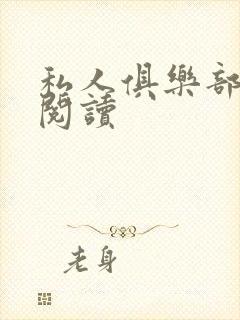 私人俱樂部
閱讀
老身